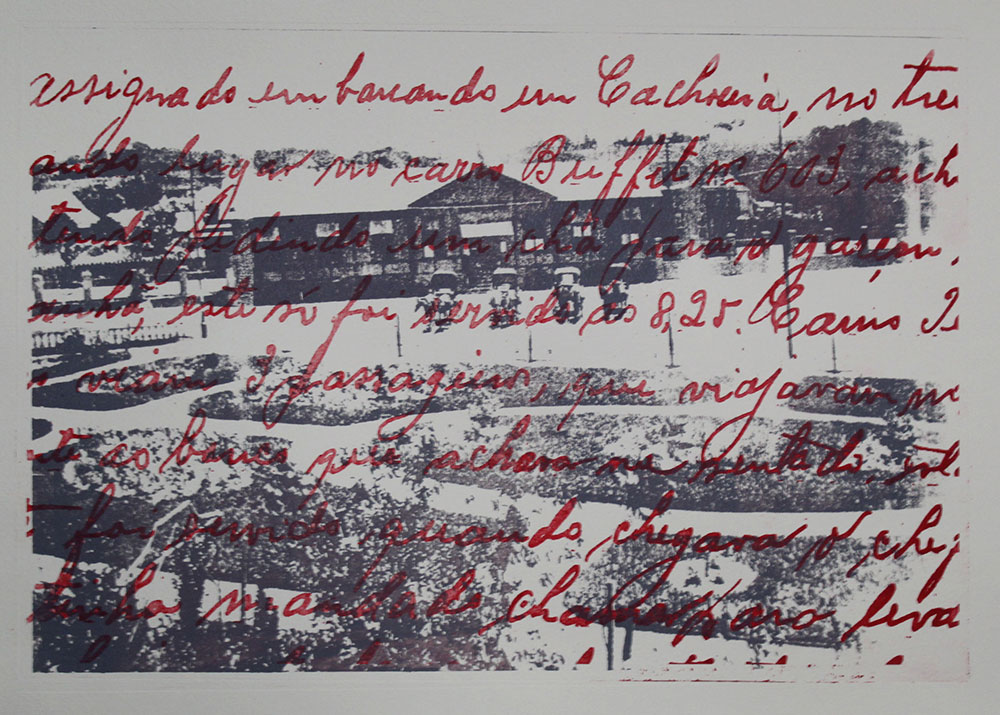 assignado embarcando em Cachoeira, no tre
ando lugar no carro Buffet nº 603, ach
tendo pedindo um chá para o garçon,
este só foi servido ás 8,25. Como
viam 3 passageiros, que viajavam
ao banco que achava me sentado,
foi servido quando chegava o che
tinha mandado chamar para leva